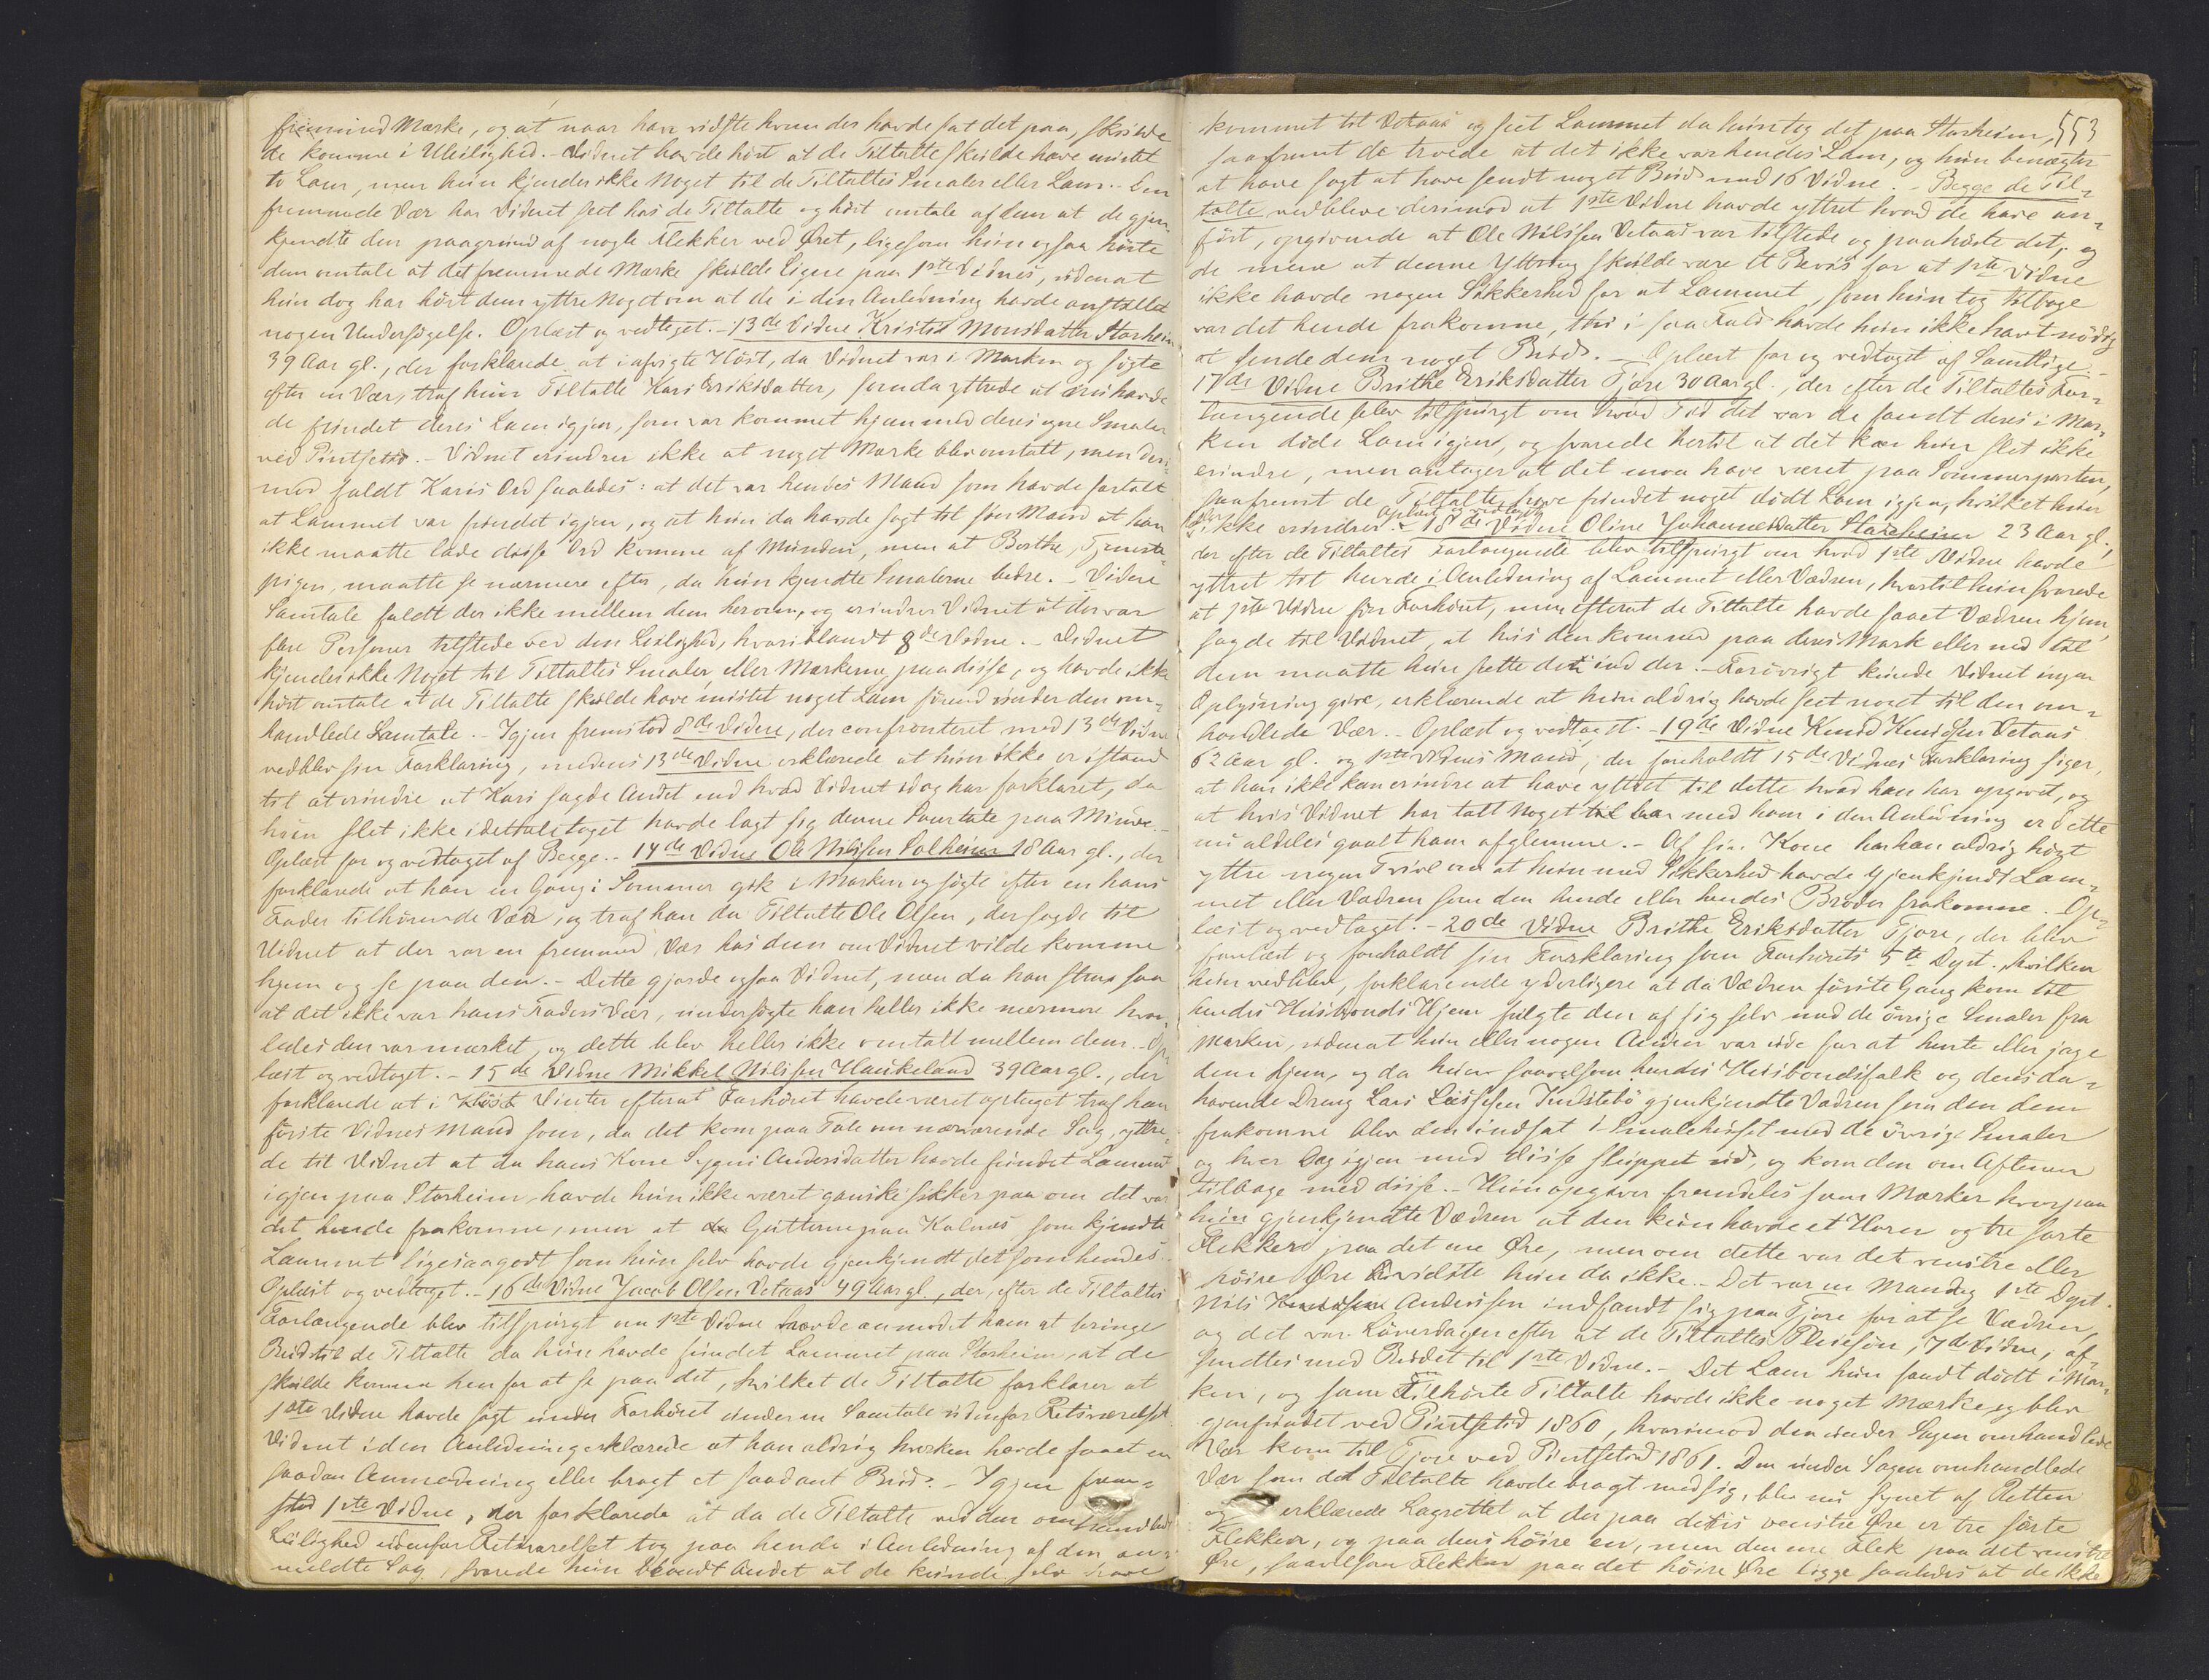 fremmed Mærke, og at naar han vidste hvem der havde sat det paa, skulde
de komme i Uleilighed. - Vidnet havde hørt at de Tiltalte skulde have mistet
to Lam, men hun kjender ikke Noget til de Tiltaltes Smaler eller Lam. - En
fremmede Vær har Vidnet seet hos de Tiltalte og hørt omtale af dem at de gjen-
kjendte den paagrund af nogle Flekker ved Øret, ligesom hun ogsaa hørte
dem omtale at det fremmede Mærke skulde ligne paa 1ste Vidnes, uden at
hun dog har hørt dem yttre Noget om at de i den Anledning havde anstillet
nogen Undersøgelse. Oplæst og vedtaget. - 13de Vidne Kristi Monsdatter Storheim
39 Aar gl., der forklarede at i afvigte Høst, da Vidnet var i Marken og søgte
efter en Vær, traf hun Tiltalte Kari Eriksdatter, som da yttrede at nu havde
de fundet deres Lam igjen, som var kommet hjem med deres egne Smaler
ved Pintsetid. - Vidnet erindrer ikke at noget Mærke blev omtalt, men deri-
mod faldt Karis Ord saaledes: at det var hendes Mand som havde fortalt
at Lammet var fundet igjen, og at hun da havde sagt til sin Mand at han
ikke maatte lade disse Ord komme af Munden, men at Berthe, Tjeneste-
pigen, maatte se nærmere efter, da hun kjendte Smalerne bedre. - Videre
Samtale faldt der ikke mellem dem herom, og erindrer Vidnet at der var
flere Personer tilstede ved den Leilighed, hvoriblandt 8de Vidne. - Vidnet
kjender ikke Noget til Tiltaltes Smaler eller Mærkerne paa disse, og havde ikke
hørt omtale at de Tiltalte skulde have mistet noget Lam førend under den om-
handlede Samtale. - Igjen fremstod 8de Vidne, der confronteret med 13de Vidne
vedblev sin Forklaring, medens 13de Vidne erklærede at hun ikke er istand
til at erindre at Kari sagde Andet end hvad Vidnet idag har forklaret, da
hun slet ikke idetheletaget havde lagt sig denne Samtale paa Minde. -
Oplæst for og vedtaget af Begge. - 14de Vidne Ole Nilssen Solheim 18 Aar gl., der
forklarede at han en Gang i Sommer gik i Marken og søgte efter en hans
Fader tilhørende Vær, og traf han da Tiltalte Ole Olsen, der sagde til
Vidnet at der var en fremmed Vær hos dem om Vidnet vilde komme
hjem og se paa den. - Dette gjorde ogsaa Vidnet, men da han strax saa
at det ikke var hans Faders Vær, undersøgte han heller ikke nærmere hvor-
ledes den var mærket, og dette blev heller ikke omtalt mellem dem. - Op-
læst og vedtaget. - 15de Vidne Mikkel Nilssen Haukeland 39 Aar gl., der
forklarede at i Høst Vinter efterat Forhøret havde været optaget traf han
første Vidnes Mand som, da det kom paa Tale om nærværende Sag, yttre-
de til Vidnet at da hans Kone Sygni Andersdatter havde fundet Lammet
igjen paa Storheim, havde hun ikke været ganske sikker paa om det var
det hende frakomne, men at Gutterne paa Kalnæs, som kjendte
Lammet ligesaagodt som hun selv havde gjenkjendt det som hendes. -
Oplæst og vedtaget. - 16de Vidne Jacob Olsen Vetaas 49 Aar gl., der, efter de Tiltaltes
Forlangende blev tilspurgt om 1ste Vidne havde anmodet ham at bringe
Bud til de Tiltalte da hun havde fundet Lammet paa Storheim, at de
skulde komme hen for at se paa det, hvilket de Tiltalte forklarer at
1ste Vidne havde sagt under Forhøret under en Samtale udenfor Retsværelset.
Vidnet i den Anledning erklærede at han aldrig hverken havde faaet en
saadan Anmodning eller bragt et saadant Bud. - Igjen frem-
stod 1ste Vidne, der forklarede at da de Tiltalte ved den omhandlede
Leilighed udenfor Retsværelset tog paa hende i Anledning af den an-
meldte Sag, svarede hun blandt Andet at de kunde selv have
553
kommet til Vetaas og seet Lammet da hun tog det paa Storheim,
saafremt de troede at det ikke var hendes Lam, og hun benægter
at have sagt at have sendt noget Bud med 16 Vidne. - Begge de Til-
talte vedbleve derimod at 1ste Vidne havde yttret hvad de have an-
ført, opgivende at Ole Nilssen Vetaas var tilstede og paahørte det, og
de mene at denne Yttring skulde være et Beviis for at 1ste Vidne
ikke havde nogen Sikkerhed for at Lammet, som hun tog tilbage
var det hende frakomne, thi i saa Fald havde hun ikke havt nødig
at sende dem noget Bud. - Oplæst for og vedtaget af Samtlige. -
17de Vidne Brithe Eriksdatter Tjore 30 Aar gl., der efter de Tiltaltes For-
langende blev tilspurgt om hvad Tid det var de fandt deres i Mar-
ken døde Lam igjen, og svarede hertil at det kan hun slet ikke
erindre, men antager at det maa have været paa Sommerparten,
saafremt de Tiltalte have fundet noget dødt Lam igjen, hvilket hun
ikke erindrer. - Oplæst og vedtaget. 18de Vidne Oline Johannesdatter Storheim 23 Aar gl.,
der efter de Tiltaltes Forlangende blev tilspurgt om hvad 1ste Vidne havde
yttret til hende i Anledning af Lammet eller Vædren, hvortil hun svarede
at 1ste Vidne før Forhøret, men efterat de Tiltalte havde faaet Vædren hjem,
sagde til Vidnet, at hvis den kom ned paa deres Mark eller ned til
dem maatte hun sætte den ind der. - Forøvrigt kunde Vidnet ingen
Oplysning give, erklærende at hun aldrig havde seet noget til den om-
handlede Vær. - Oplæst og vedtaget. - 19de Vidne Knud Knudsen Vetaas
62 Aar gl. og 1ste Vidnes Mand, der foreholdt 15de Vidnes Forklaring siger,
at han ikke kan erindre at have yttret til dette hvad han har opgivet, og
at hvis Vidnet har talt Noget med ham i den Anledning er dette
nu aldeles gaaet ham afglemme. - Af sin Kone har han aldrig hørt
yttre nogen Tvivl om at hun med Sikkerhed havde gjenkjendt Lam-
met eller Vædren som den hende eller hendes Broder frakomne. Op-
læst og vedtaget. - 20de Vidne Brithe Eriksdatter Tjore, der blev
forelæst og foreholdt sin Forklaring som Forhørets 5te Dept., hvilken
hun vedblev, forklarende yderligere at da Vædren første Gang kom til
hendes Huusbonds Hjem fulgte den af sig selv med de øvrige Smaler fra
Marken, uden at hun eller nogen Anden var ude for at hente eller jage
dem hjem, og da hun saavelsom hendes Huusbondsfolk og deres da-
havende Dreng Lars Larssen gjenkjendte Vædren som den dem
frakomne blev den indsat i Smalehuset med de øvrige Smaler
og hver Dag igjen med disse sluppet ud, og kom den om Aftenen
tilbage med disse. - Hun opgiver fremdeles som Mærker hvorpaa
hun gjenkjendte Vædren at den kun havde et Horn og tre sorte
Flekker paa det ene Øre, men om dette var det venstre eller
høire Øre vidste hun da ikke. - Det var en Mandag 1ste Dept.
Nils Anderssen indfandt sig paa Tjore for at se Vædren,
og det var Løverdagen efter at de Tiltaltes Pleiesøn, 7de Vidne, af-
sendtes med Budet til 1ste Vidne. - Det Lam hun fandt dødt i Mar-
ken, og som tilhørte Tiltalte havde ikke noget Mærke, og blev
gjenfundet ved Pintsetid 1860, hvorimod den under Sagen omhandlede
Vær kom til Tjore ved Pintsetid 1861. Den under Sagen omhandlede
Vær som de Tiltalte havde bragt med sig, blev nu synet af Retten
og erklærede Lagrettet at der paa dettes venstre Øre er tre sorte
Flekker, og paa dens høire en, men den ene Flek paa det venstre
Øre, saavelsom Flekken paa det høire Øre ligge saaledes at de ikke